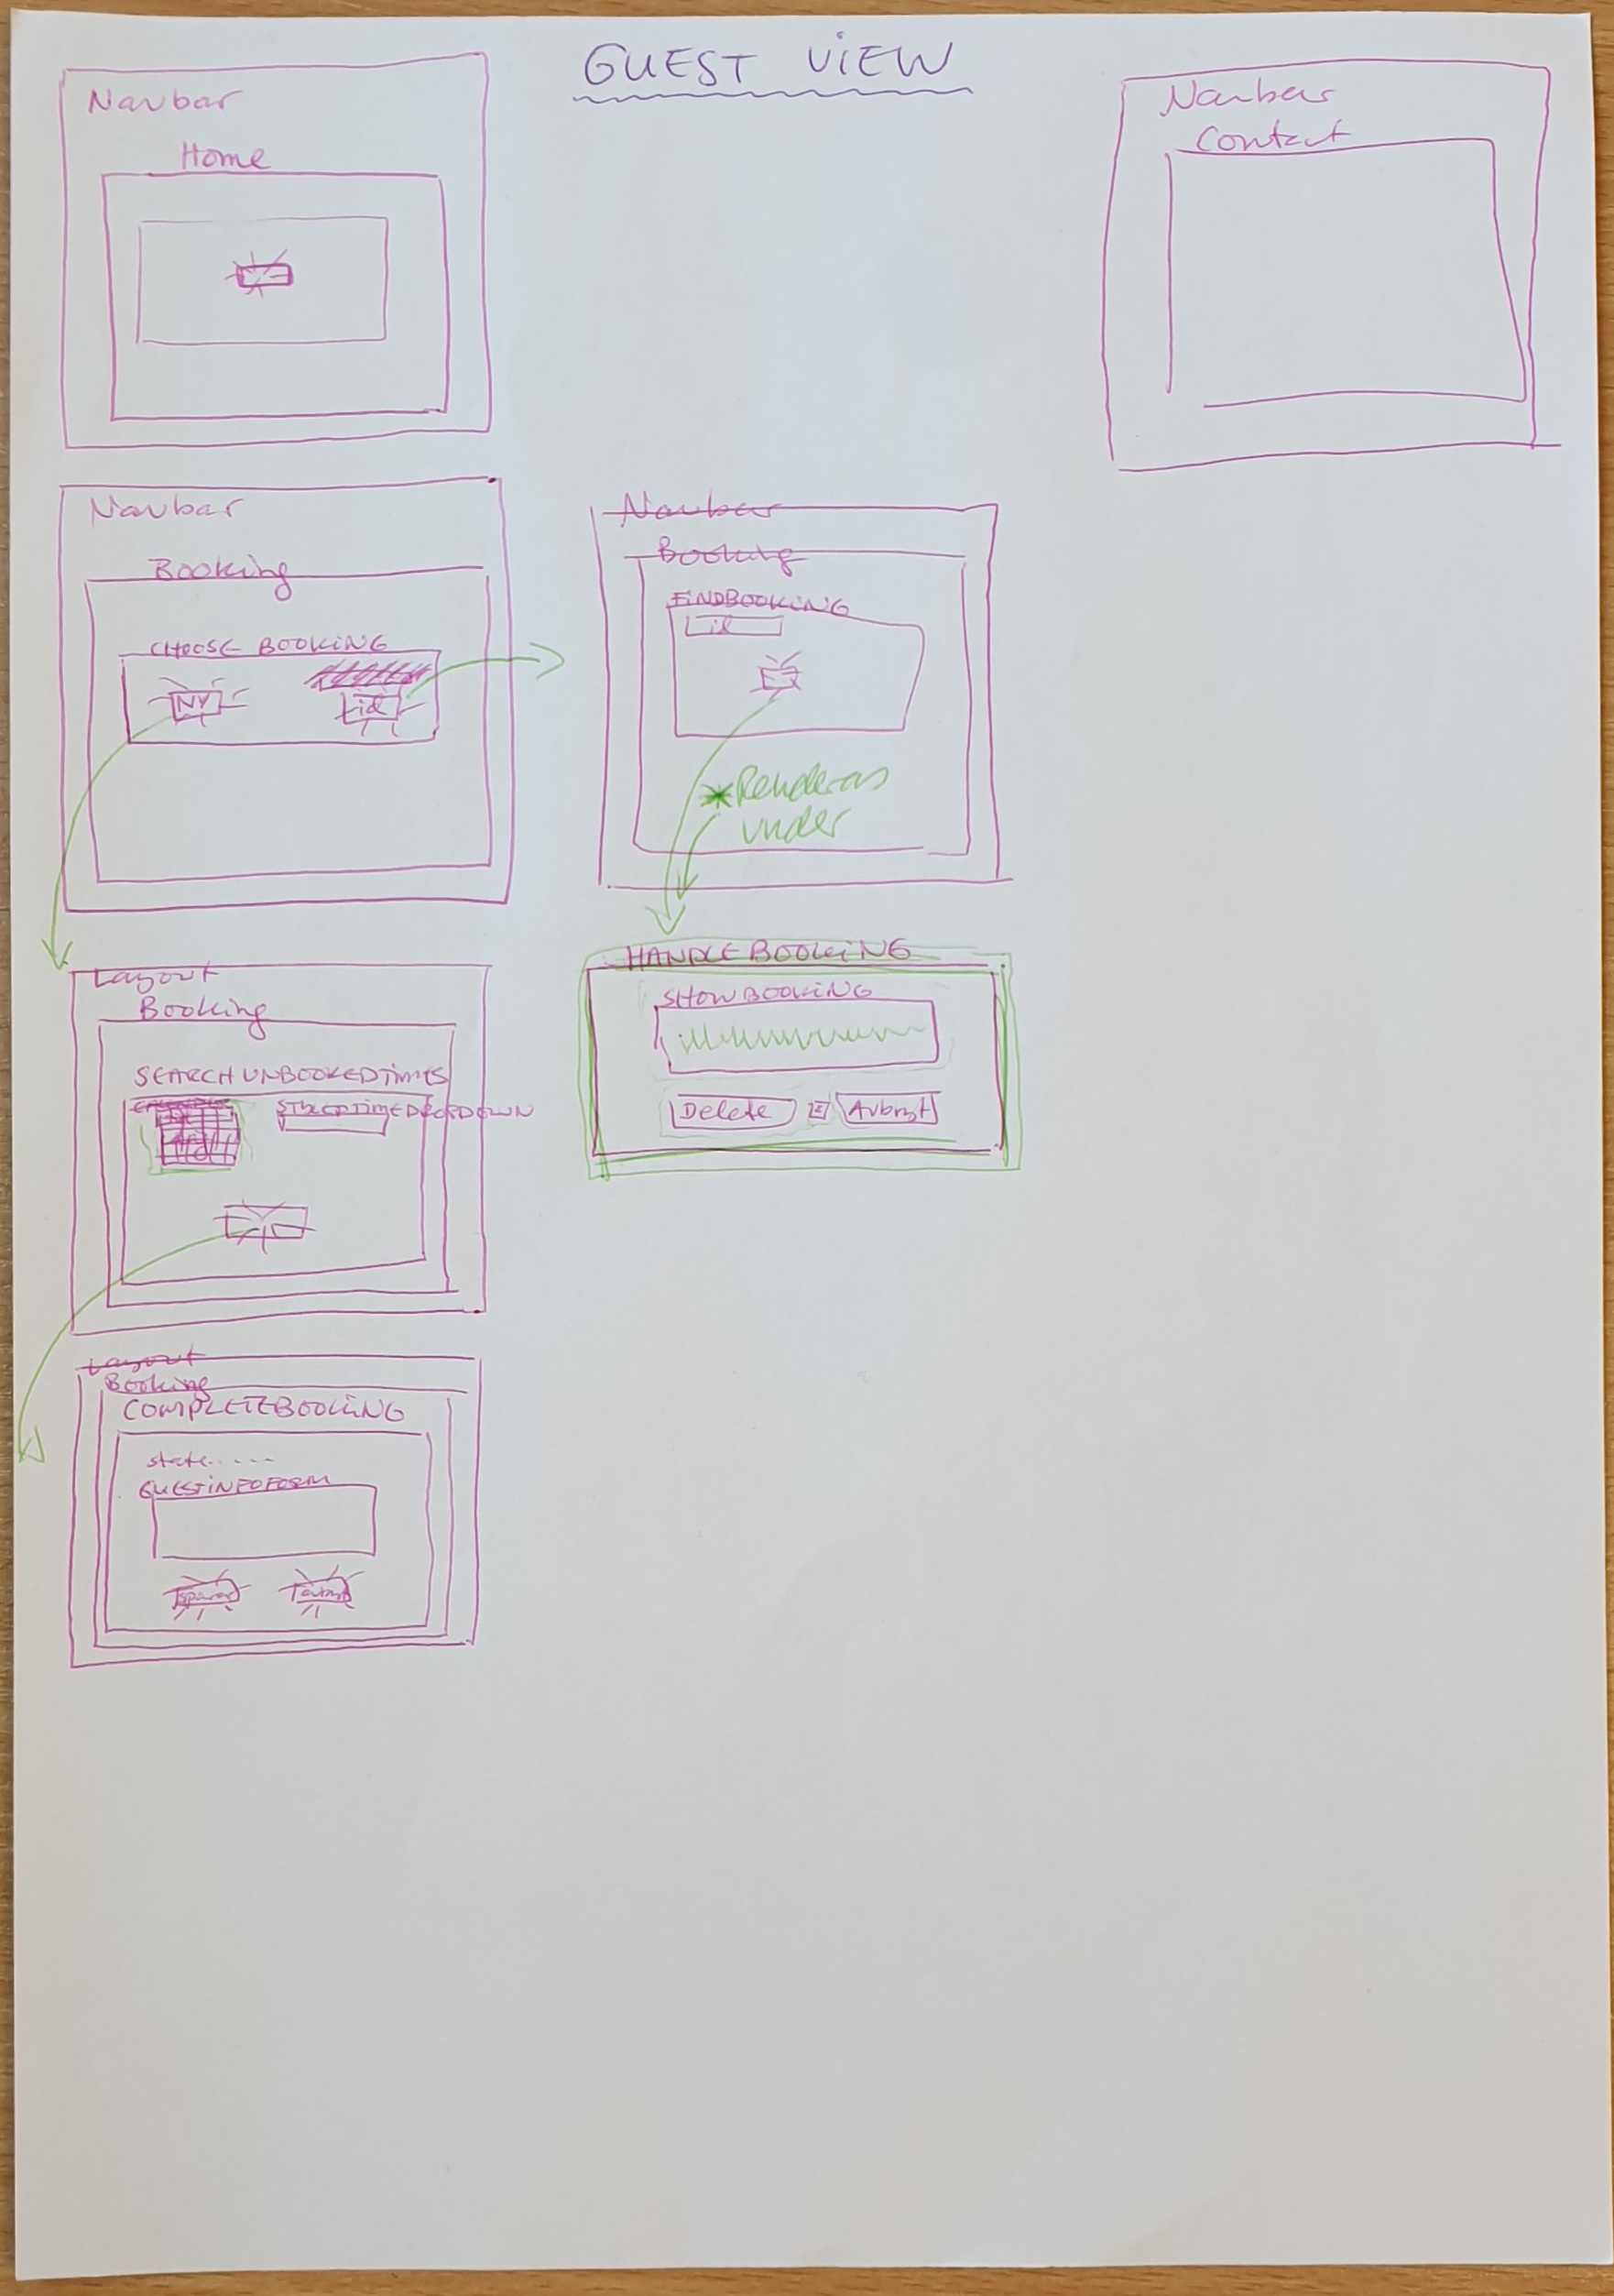 GUEST VIEW
Navbar
Home
Navbar
Contact
Navbar
Booking
CHOOSE BOOKING
NY
id
Navbar
Booking
FINDBOOKING
id
*Renderas
under
Layout
Booking
SEARCHUNBOOKEDTIMES
HANDLEBOOKING
SHOWBOOKING
Delete
Avbryt
Layout
Booking
COMPLETEBOOKING
state.....
GUESTINFOFORM